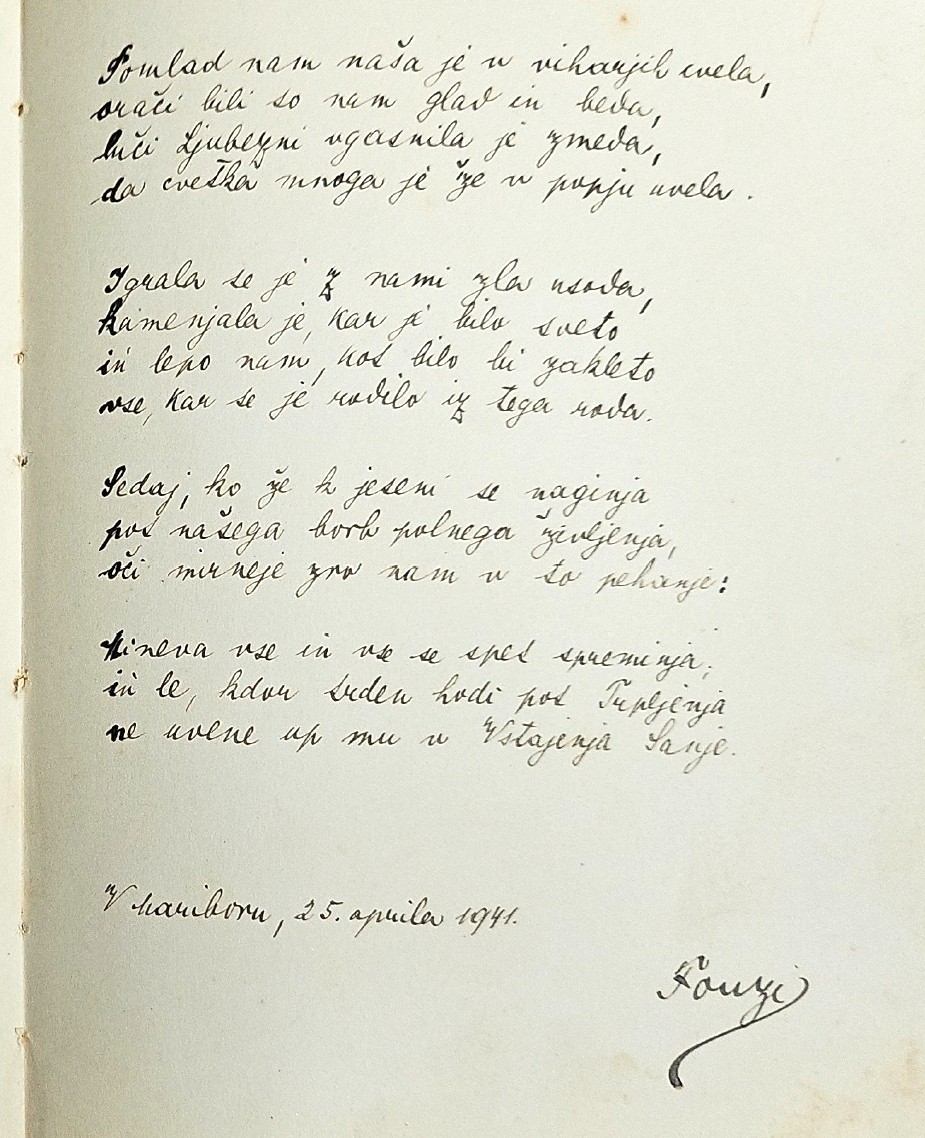 Pomlad nam naša je v viharjih cvela,
orači bili so nam glad in beda,
luči Ljubezni vgasnila je zmeda,
da cvetka mnoga je že v popju uvela.
Igrala se je z nami zla usoda,
kamenjala je, kar je bilo sveto
in lepo nam, kot bilo bi zakleto
vse, kar se je rodilo iz tega roda.
Sedaj, ko že k jeseni se naginja
pot našega borb polnega življenja,
oči mirneje zro nam v to pehanje:
Mineva vse in vse se spet spreminja;
in le, kdor trden hodi pot Trpljenja
ne uvene up mu v Vstajenja Sanje.
V Mariboru, 25. aprila 1941.